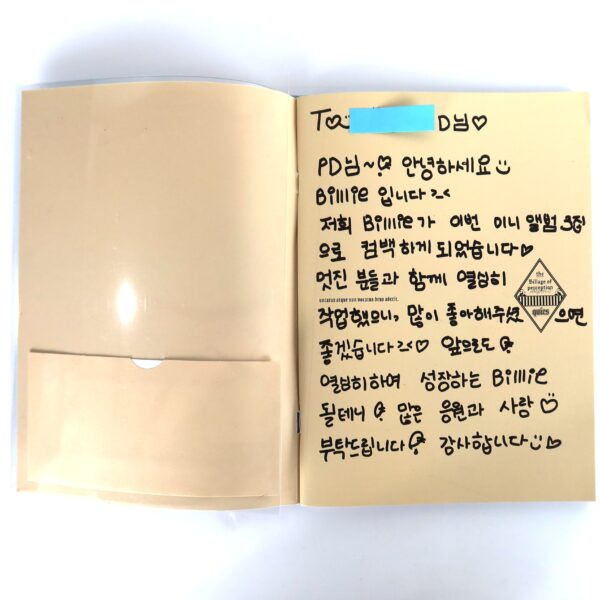 To D님♡
PD님~ 안녕하세요
Billlie 입니다 >_<
저희 Billlie가 이번 미니 앨범 3집
으로 컴백 하게 되었습니다♡
멋진 분들과 함께 열심히
작업했으니, 많이 좋아해주셨으면
좋겠습니다 >_<♡ 앞으로도
열심히하여 성장하는 Billlie
될테니 많은 응원과 사랑♡
부탁드립니다 감사합니다♡
the
Billage of
perception